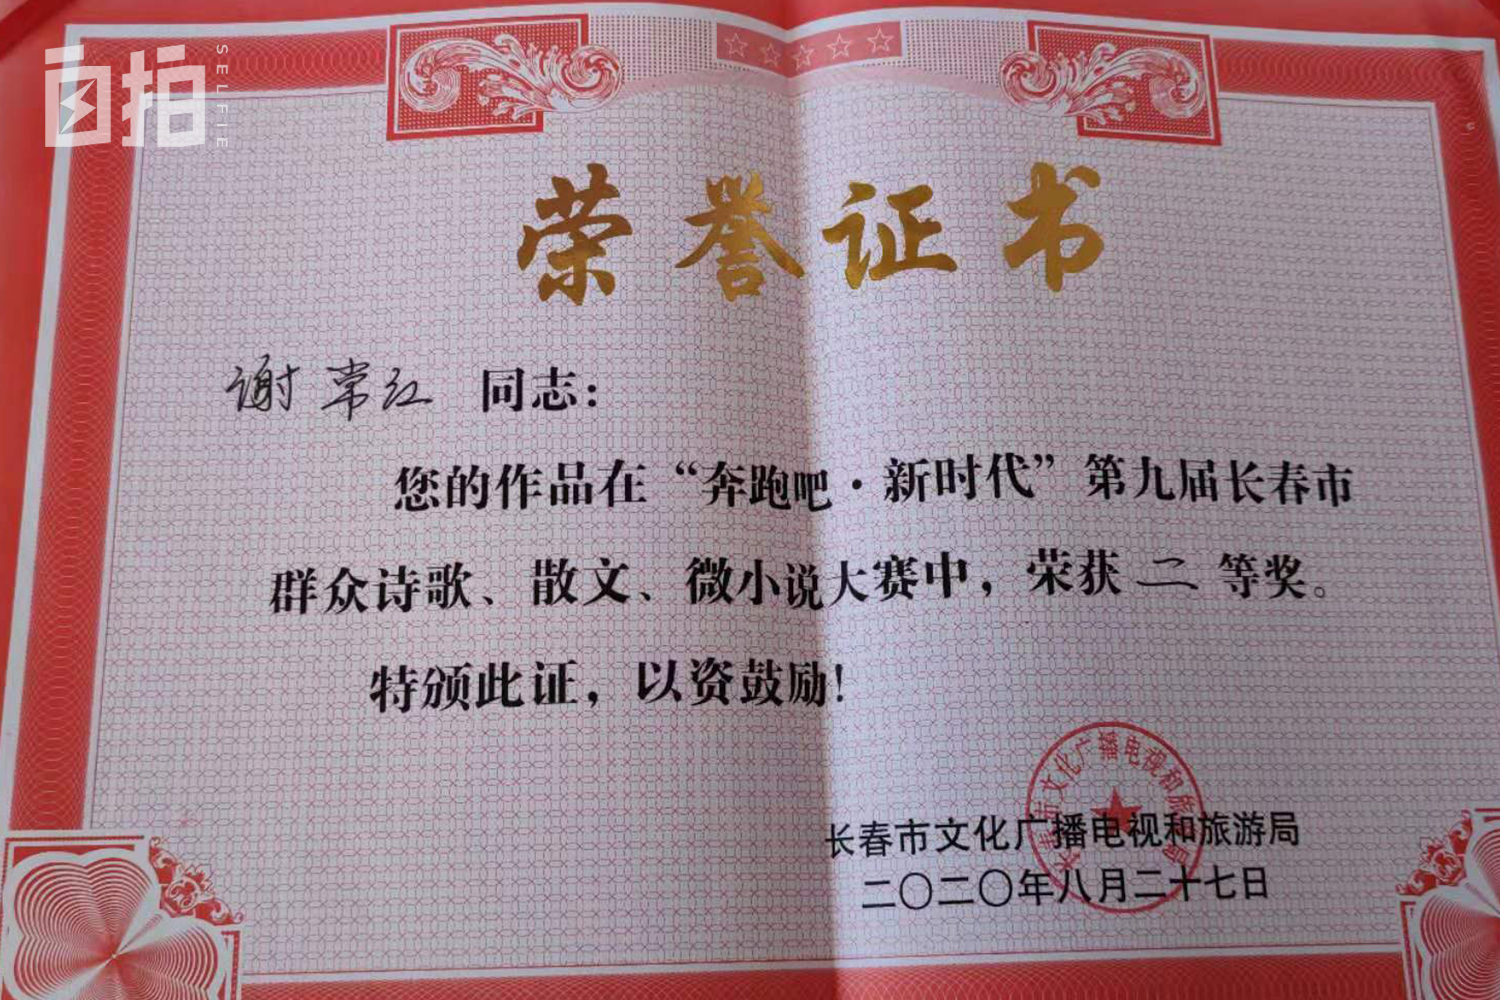 自拍
SELFIE
荣誉证书
谢常江 同志：
您的作品在“奔跑吧·新时代”第九届长春市
群众诗歌、散文、微小说大赛中，荣获 二 等奖。
特颁此证，以资鼓励！
长春市文化广播电视和旅游局
长春市文化广播电视和旅游局
二〇二〇年八月二十七日